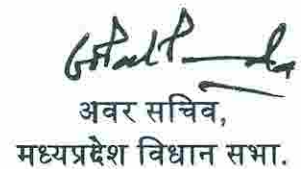 अवर सचिव,
मध्यप्रदेश विधान सभा.